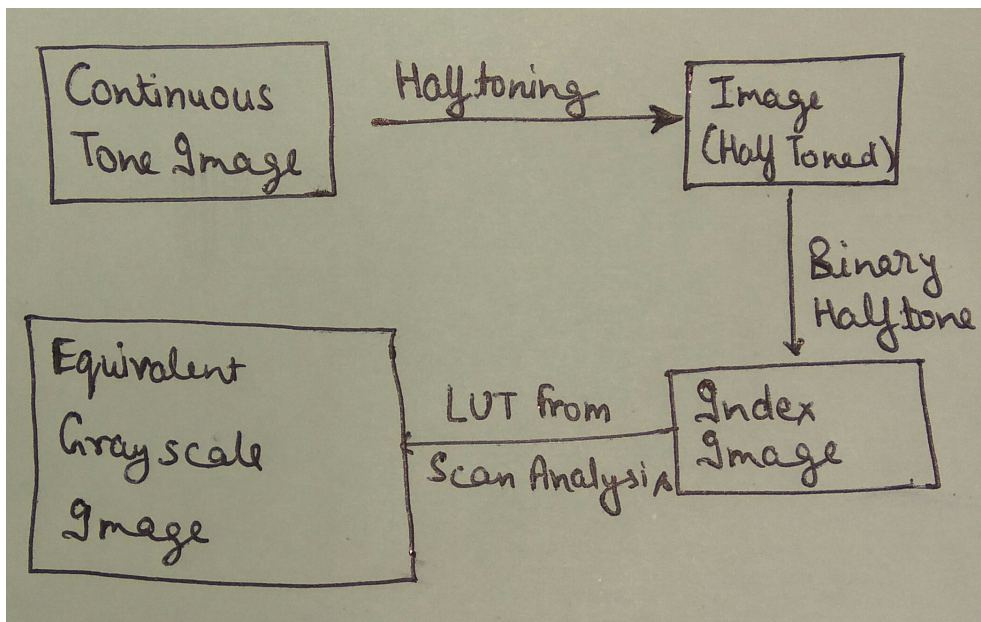 Continuous
Tone Image
Halftoning
Image
(Half Toned)
Binary
Halftone
Index
Image
LUT from
Scan Analysis
Equivalent
Grayscale
Image